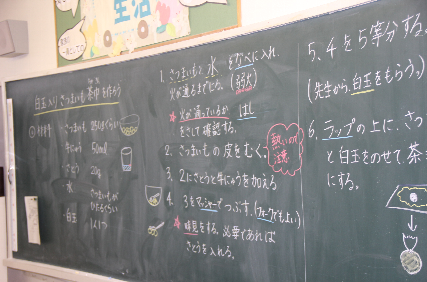 生活
白玉入りさつまいも茶巾を作ろう
材料
さつまいも
牛にゅう 50ml
さとう 20g
水 さつまいもが
ひたるくらい
白玉 1人1つ
1. さつまいもと水をなべに入れ、
火が通るまでにる。(弱火)
★火が通っているか はし
をさして確認する。
熱いので注意
2. さつまいもの皮をむく。
3. 2にさとうと牛にゅうを加える
4. 3をマッシャーでつぶす。(フォークでもよい)
★味見をする。必要であれば
さとうを入れる。
5. 4を5等分する。
(先生から、白玉をもらう。)
6. ラップの上に、さつ
と白玉をのせて茶
にする。